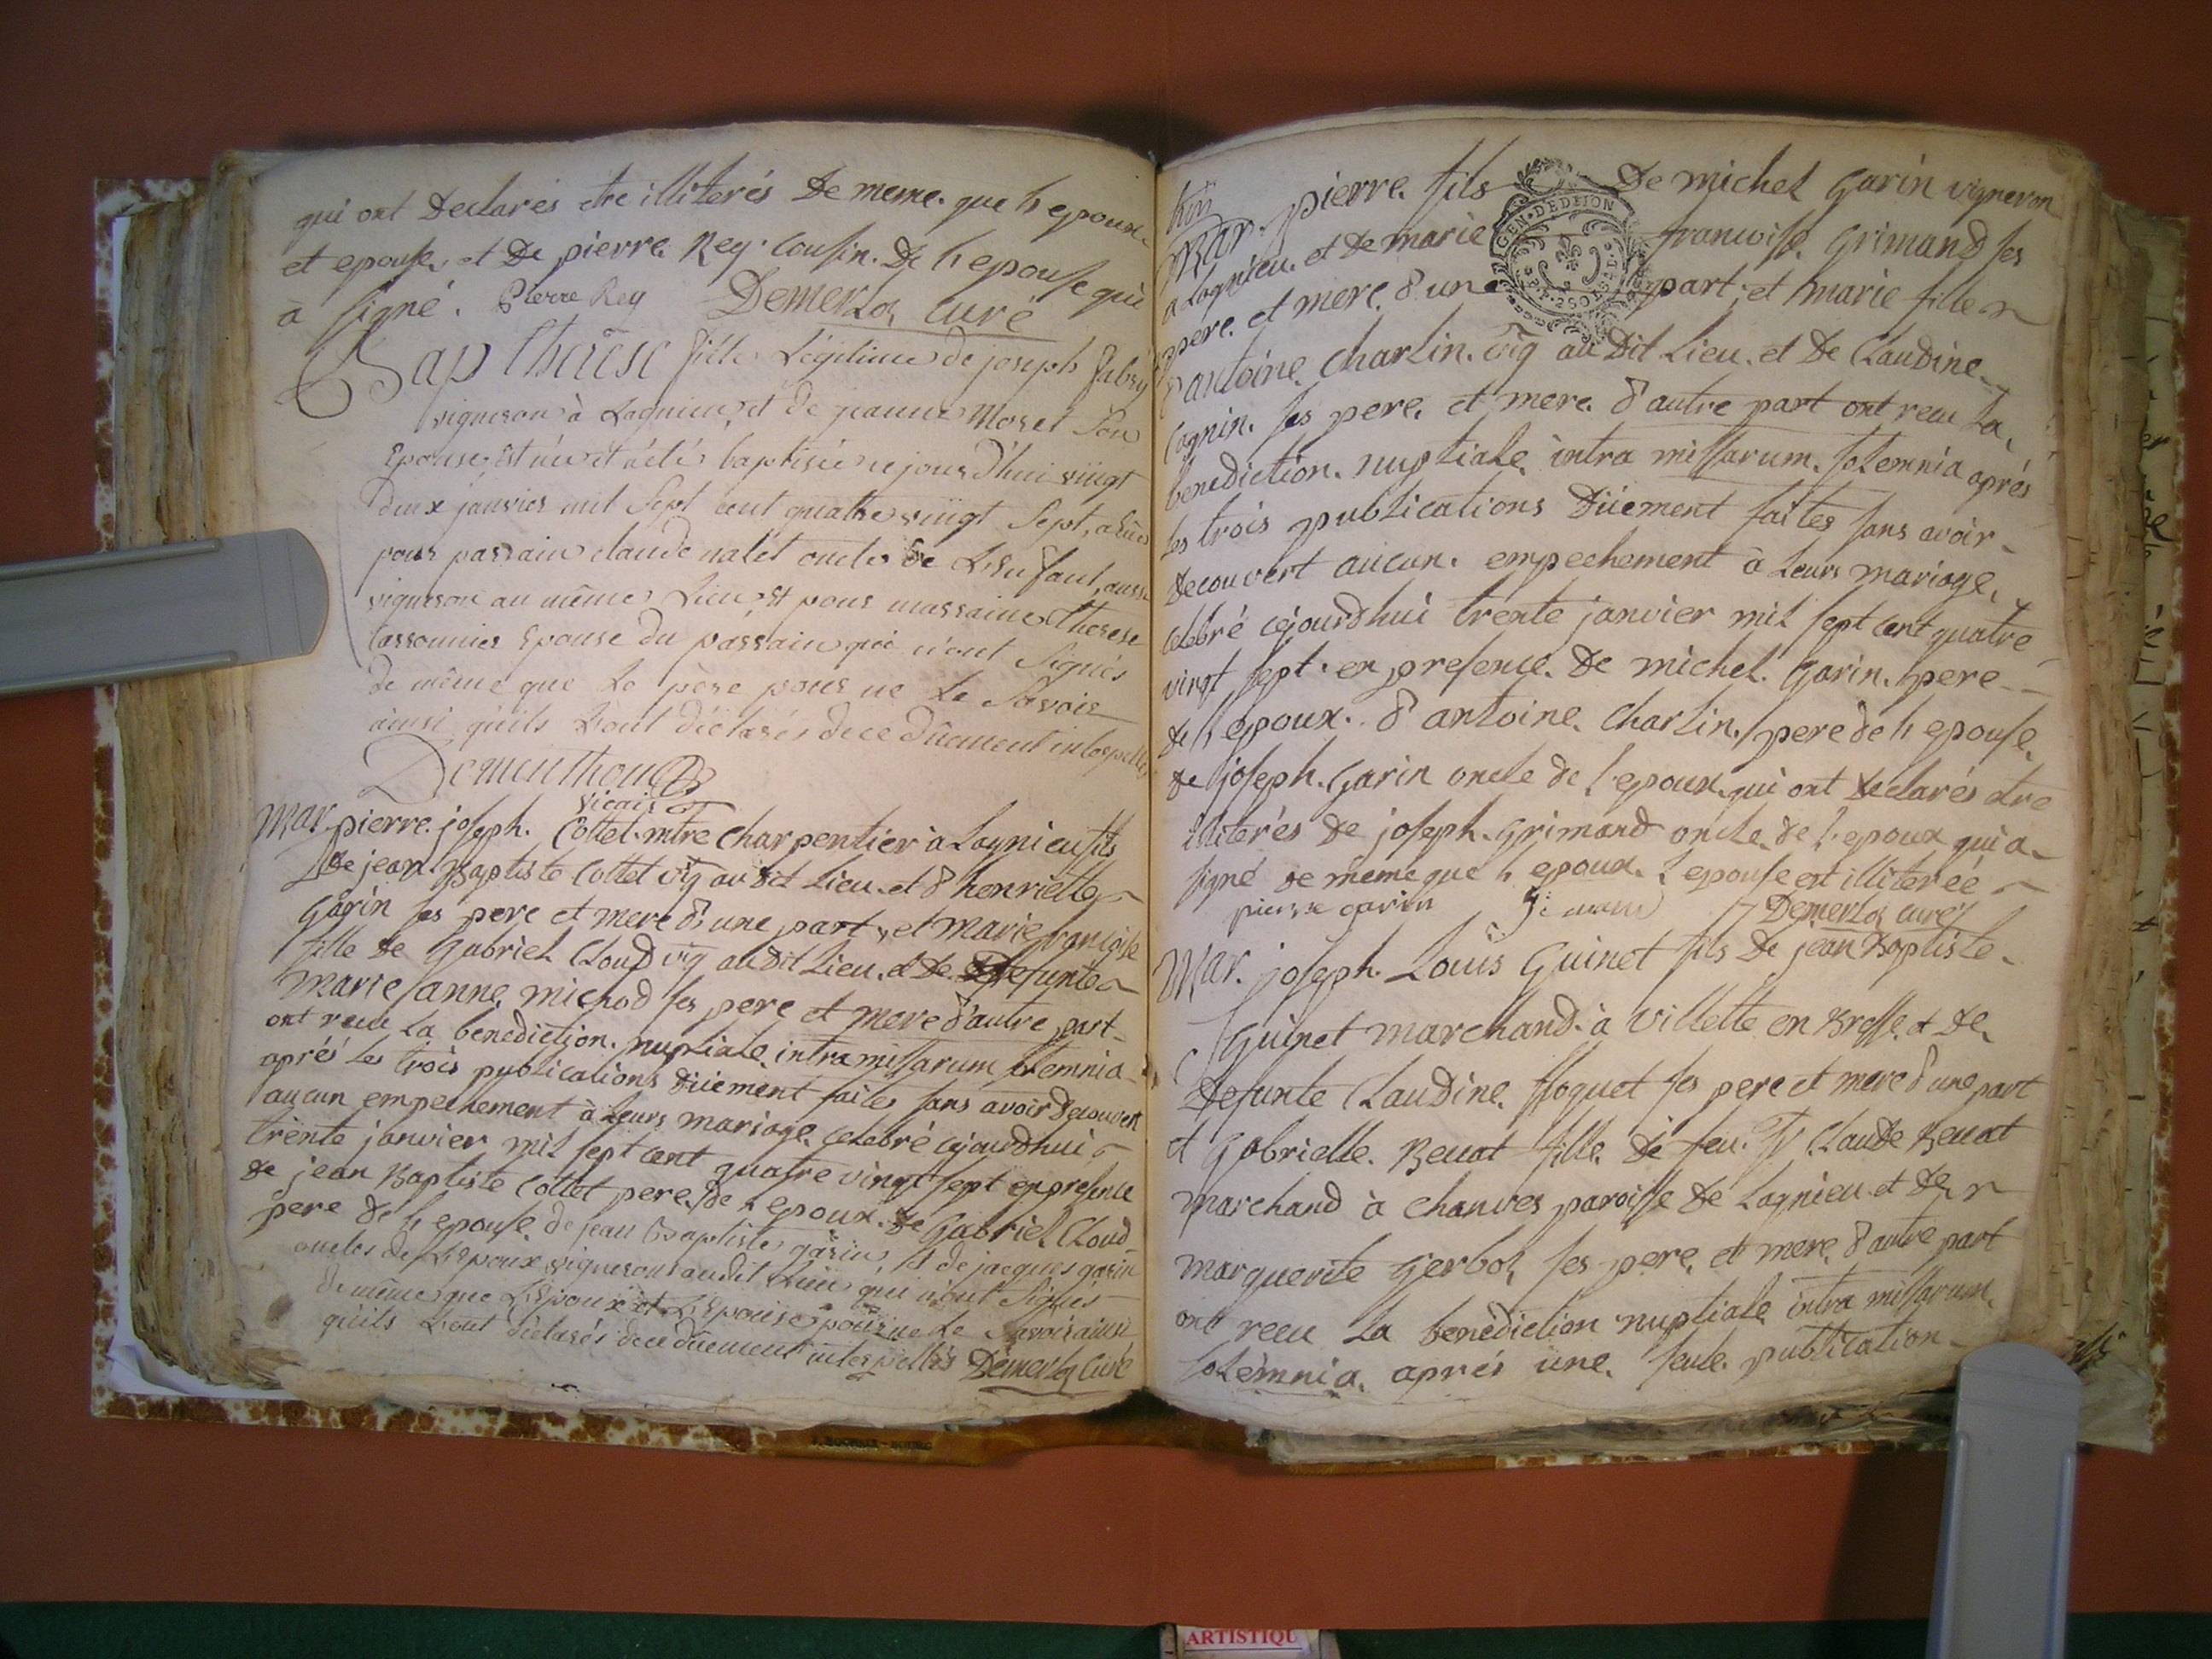 qui ont Declarés etre illiterés De meme que l epoux
et epouse, et De pierre Rey Cousin De l epouse qui
à signé. Pierre Rey Demerloz Curé
Bap therese fille Légitime de joseph fabry
vigneron à Lagnieu, et de jeanne Morel Son
Epouse, Est née et a été baptisée ce jourd'hui vingt
deux janvier mil Sept cent quatre vingt Sept, a Eue
pour parrain claude valet oncle de L'Enfant, aussi
vigneron au même Lieu, Et pour marraine therese
tassonnier Epouse du parrain qui n'ont Signés
de même que Le père pour ne Le Savoir
ainsi qu'ils L'ont déclarés de ce dûement interpellés
Dementhon
vicaire
Mar. pierre joseph Collet mtre charpentier à Lagnieu fils
De jean Baptiste Collet vig au dit Lieu et d henriette
Garin ses pere et mere d'une part, et Marie francoise
fille de Gabriel Cloud vig audit Lieu et De Defunte
Marie anne michod ses pere et mere d'autre part
ont recu La benediction nuptiale intra missarum solemnia
aprés les trois publications Düement faites sans avoir decouvert
aucun empechement à Leurs mariage celebré cejourdhui
trente janvier mil sept cent quatre vingt sept en presence
de jean Baptiste Collet pere de l epoux de Gabriel Cloud
pere de l epouse de jean Baptiste garin, Et de jacques garin
oncles de L'Epoux vignerons audit Lieu qui n'ont Signés
de même que L'Epoux et L'Epouse pour ne Le Savoir ainsi
qu'ils L'ont déclarés de ce dûement interpellés Demerloz Curé
Mar. pierre fils De michel Garin vigneron
GEN. DE DIJON
a Lagnieu et De marie francoise Grimand ses
pere et mere d'une part, et marie fille
d'antoine Charlin vig au Dit Lieu et De Claudine
Cognin ses pere et mere d'autre part ont recu La
benediction nuptiale intra missarum solemnia aprés
les trois publications Düement faites sans avoir
Decouvert aucun empechement à Leurs mariage
celebré cejourdhui trente janvier mil sept cent quatre
vingt sept en presence De michel Garin pere
de l epoux d'antoine Charlin pere de l epouse
de joseph Garin oncle de l'epoux qui ont declarés etre
illiterés de joseph Grimand oncle de l'epoux qui a
signé de même que l epoux L'epouse est illiterée
pierre garin Demerloz curé
Mar. joseph Louis Guinet fils De jean Baptiste
Guinet marchand à Villette en Bresse et De
Defunte Claudine ffoquet ses pere et mere d'une part
et Gabrielle Benat fille De feu Sr Claude Benat
marchand à chanves paroisse de Lagnieu et de
marguerite Gerboz ses pere et mere d'autre part
ont recu La benediction nuptiale intra missarum
solemnia aprés une seule publication
ARTISTIQU